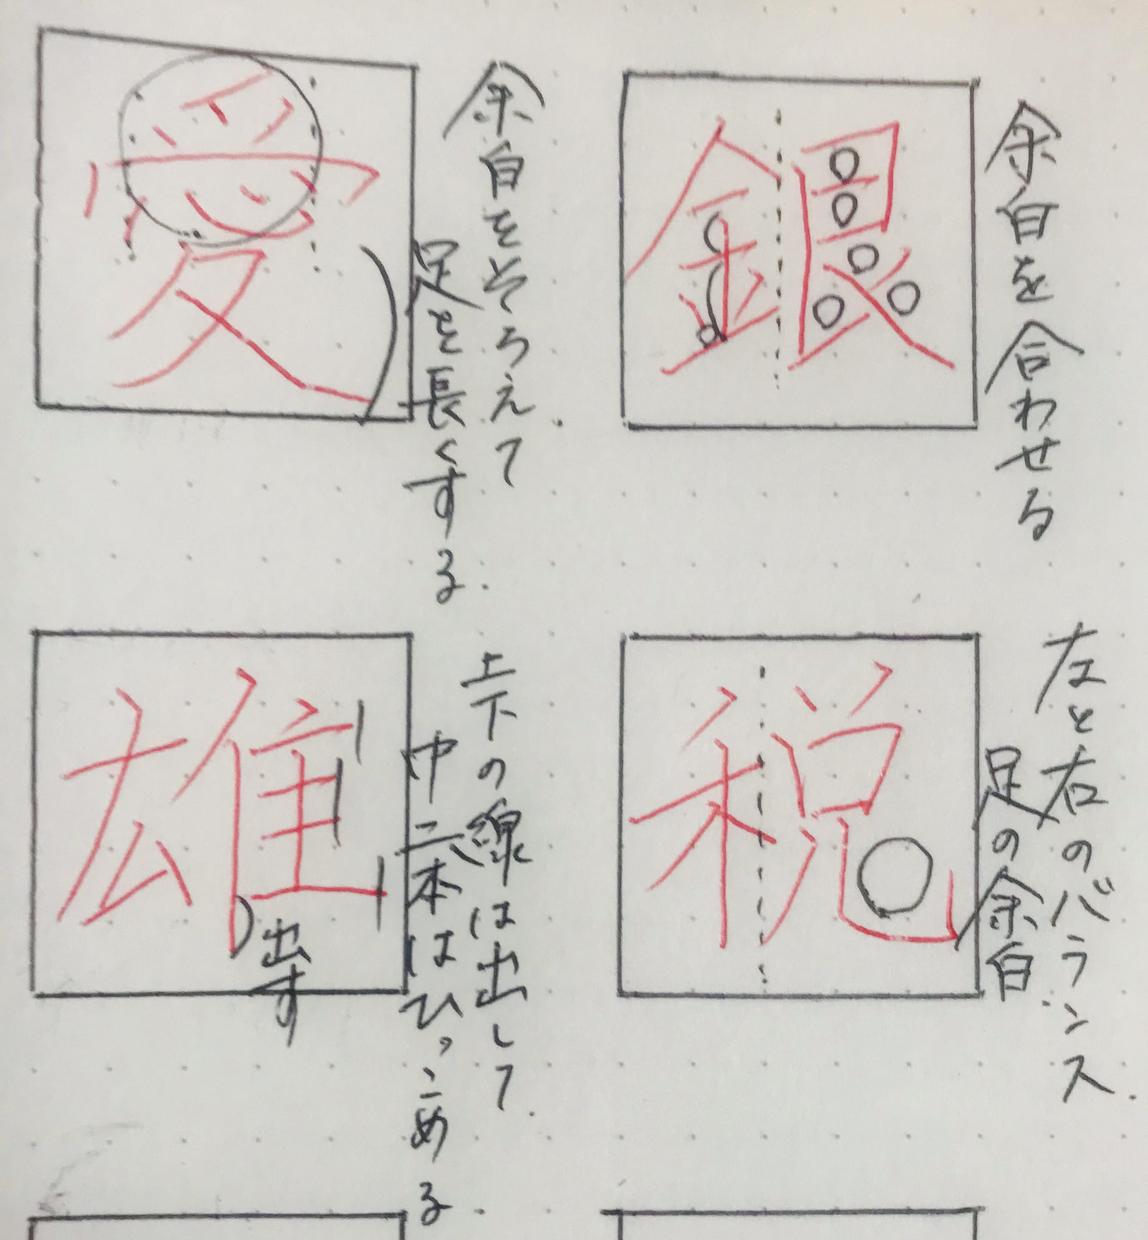 銀
余白を合わせる
愛
余白をそろえて
足を長くする.
税
左と右のバランス.
足の余白.
雄
出す
上下の線は出して.
中二本はひっこめる.